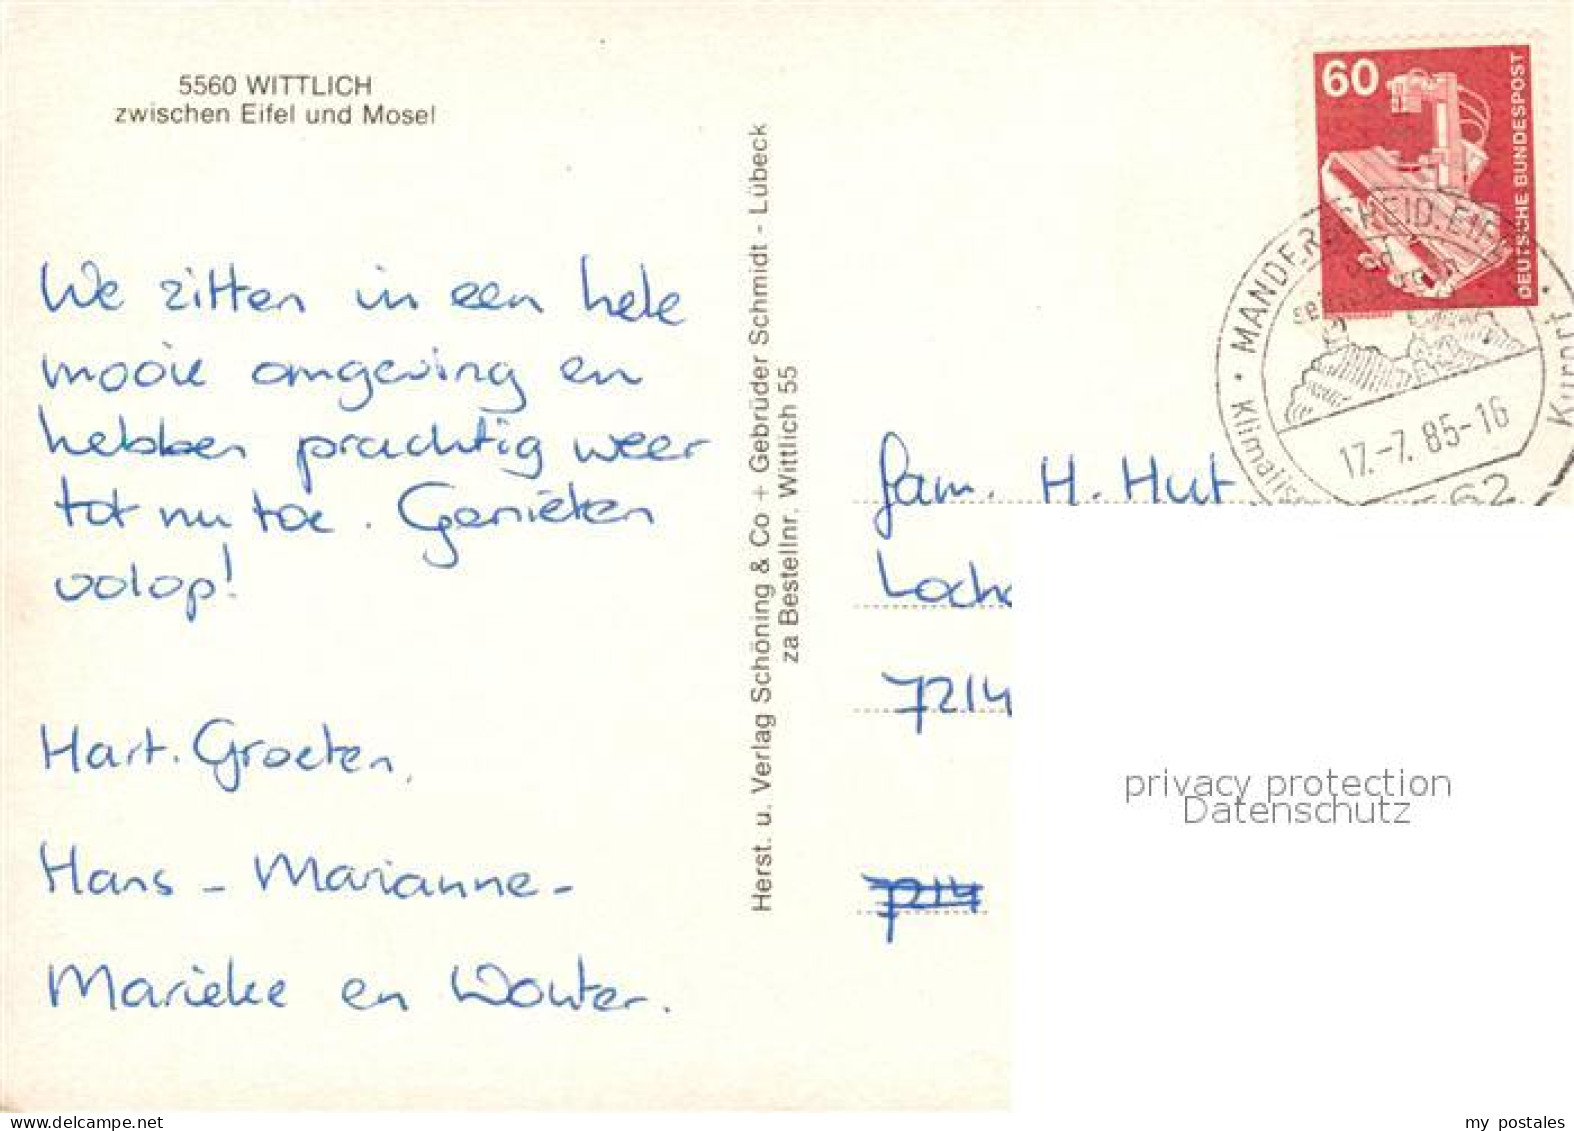 5560 WITTLICH
zwischen Eifel und Mosel
We zitten in een hele
mooie omgeving en
hebben prachtig weer
tot nu toe. Genieten
volop!
Hart. Groeten,
Hans - Marianne -
Marieke en Wouter.
Herst. u. Verlag Schöning & Co + Gebrüder Schmidt - Lübeck
za Bestellnr. Wittlich 55
60
DEUTSCHE BUNDESPOST
MANDERSCHEID. EIFEL
17.-7.85-16
562
Kurort
fam. H. Hut
Loch
7214
7214
privacy protection
Datenschutz
www.delcampe.net
my postales